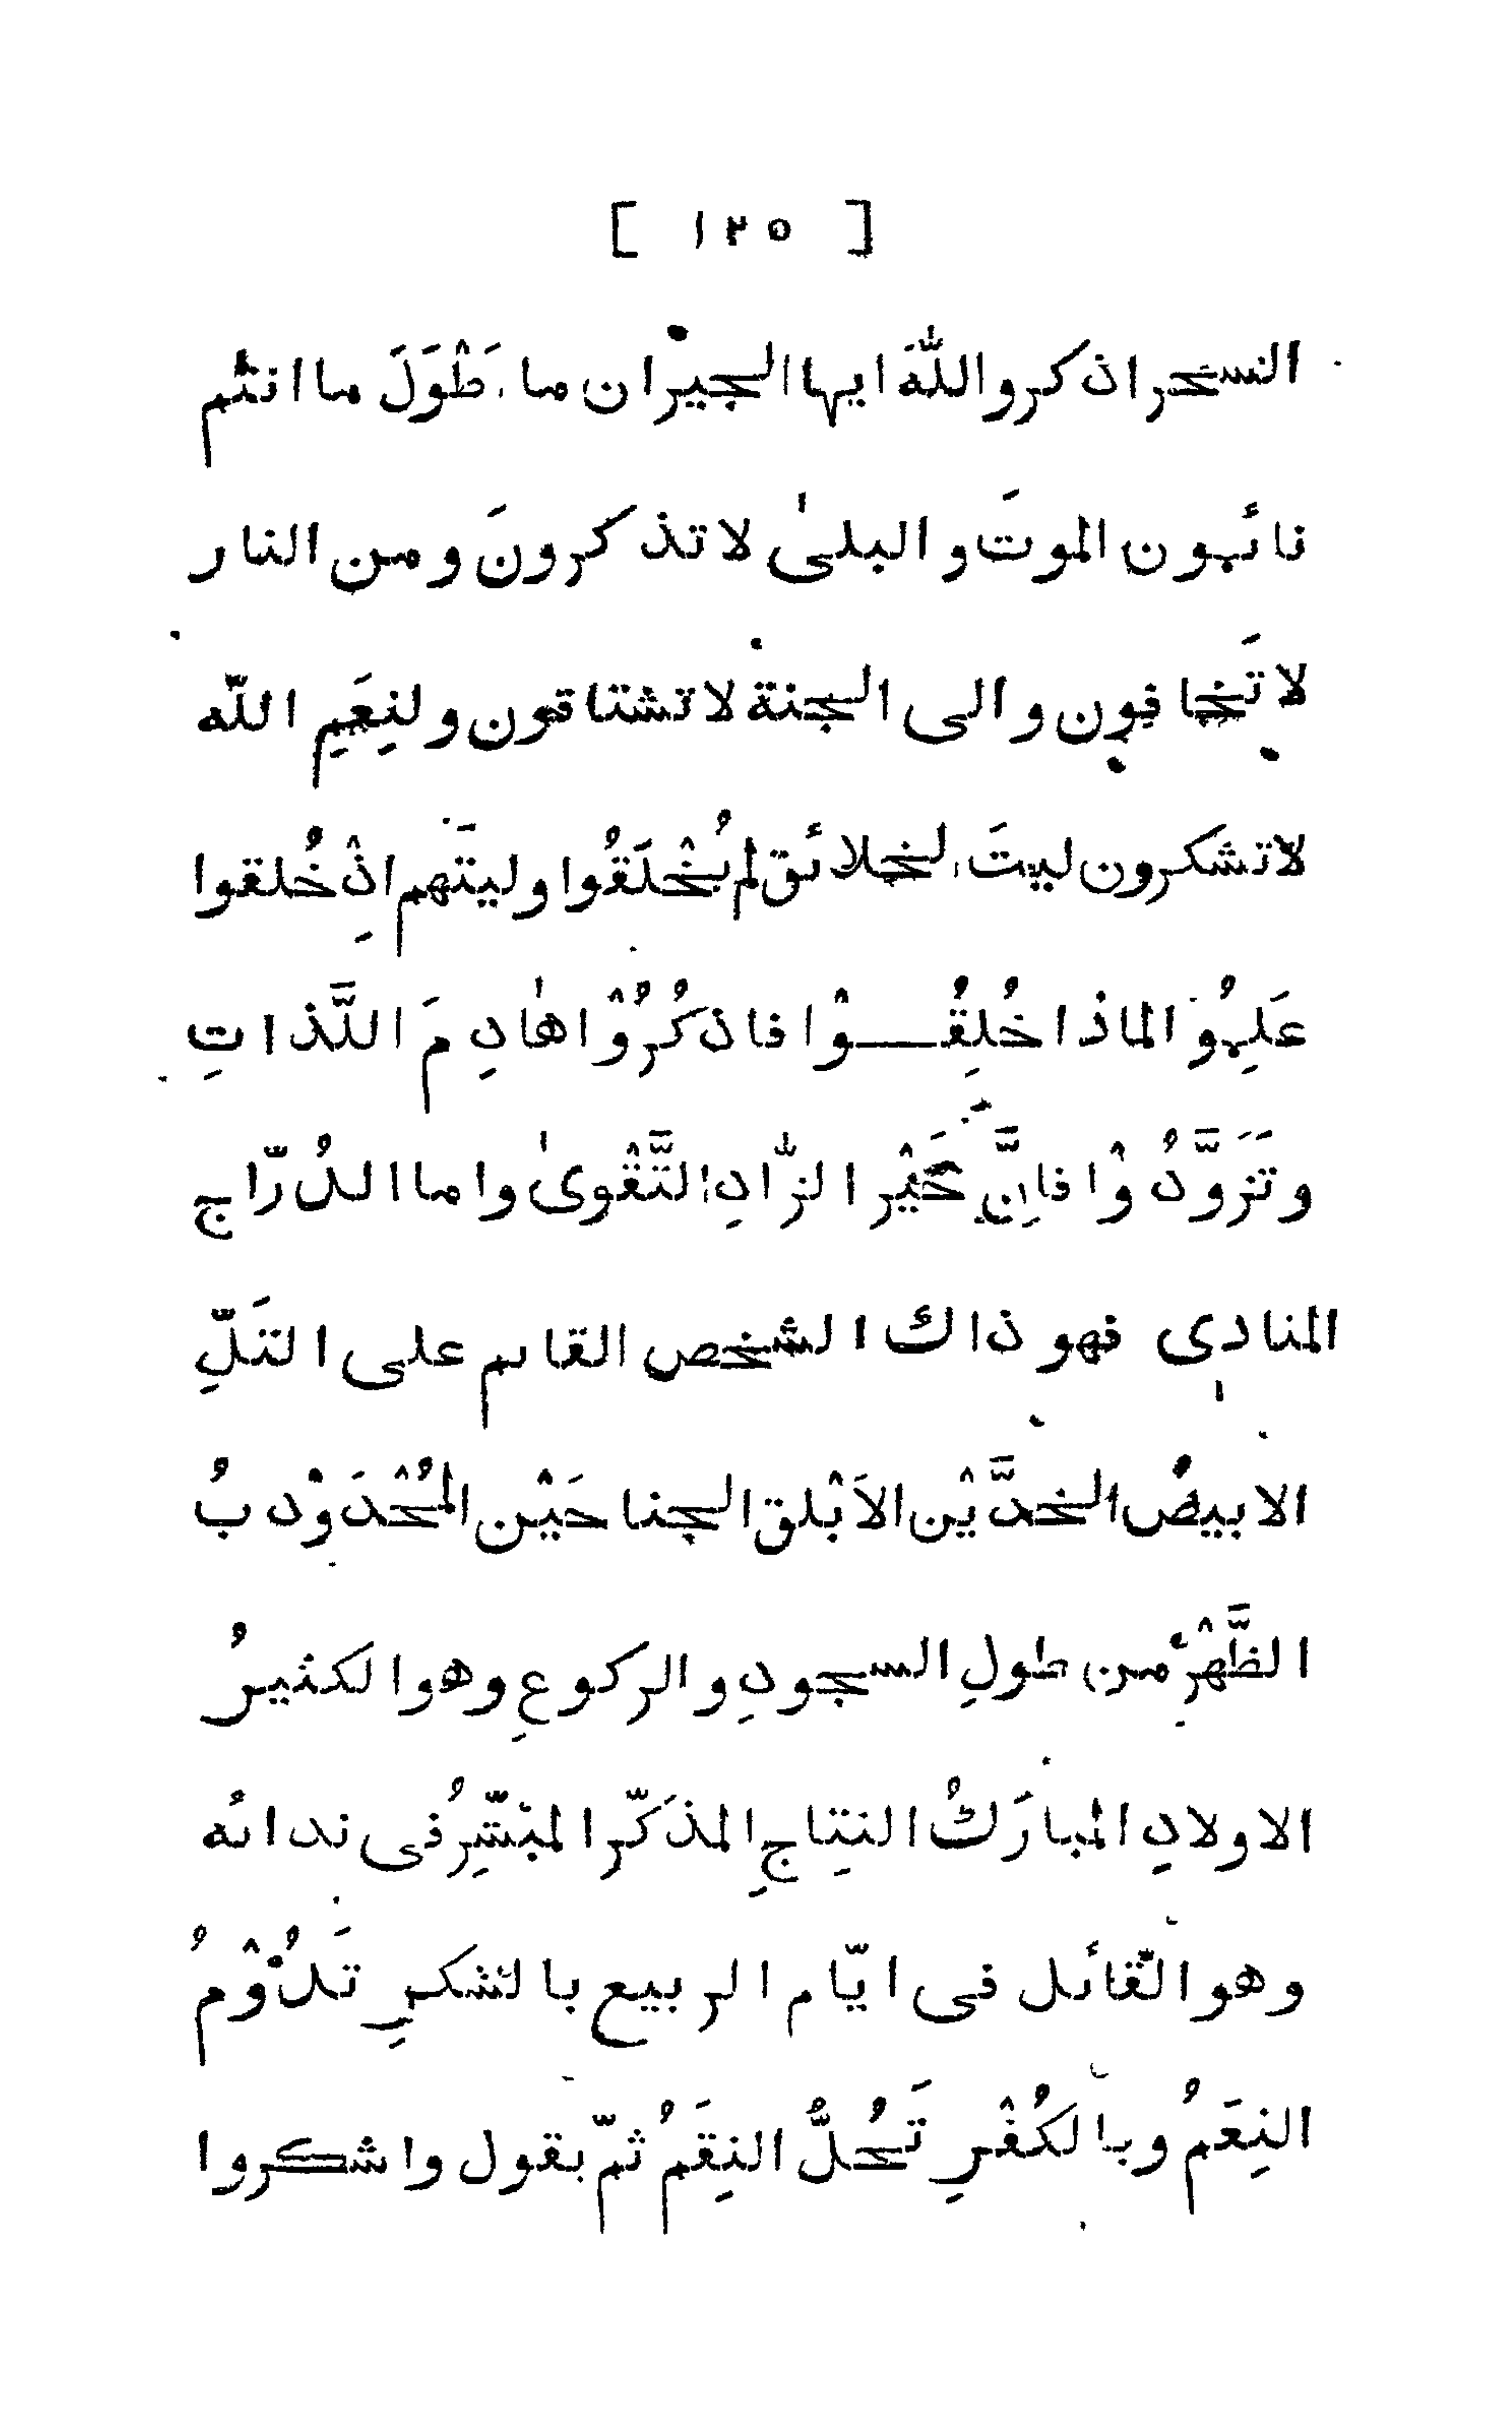 [ ١٢٥ ]
السحر اذكروا اللهَ ايها الجيْران ما اَطْوَلَ ما انتم
نائبون الموتَ والبلىٰ لا تذكرونَ ومن النار
لا تَخافون والى الجنة لا تشتاقون ولنِعَمِ اللّه
لا تشكرون ليتَ الخلائق لم يُخْلَقُوا وليتَهم اذْ خُلقوا
عَلِمُوا لماذا خُلِقُوْا فاذكُرُوْا هٰادِمَ اللَّذاتِ
وتَزَوَّدُوْا فاِنَّ خَيْر الزّادِ التَّقْوىٰ واما الدُرّاج
المنادى فهو ذاك الشخص القايم على التَلِّ
الابيضُ الخدَّيْن الاَبْلق الجناحَيْن المُحْدَوْدبُ
الظَّهْرِ من طولِ السجودِ والركوعِ وهو الكثيرُ
الاولادِ المبارَكُ النِتاجِ المذكّر المبشّرُ فى ندائه
وهو القائل فى ايّام الربيع بالشكرِ تَدُوْمُ
النِعَمُ وبالكُفْرِ تَحُلُّ النِقَمُ ثمّ يقول واشكروا